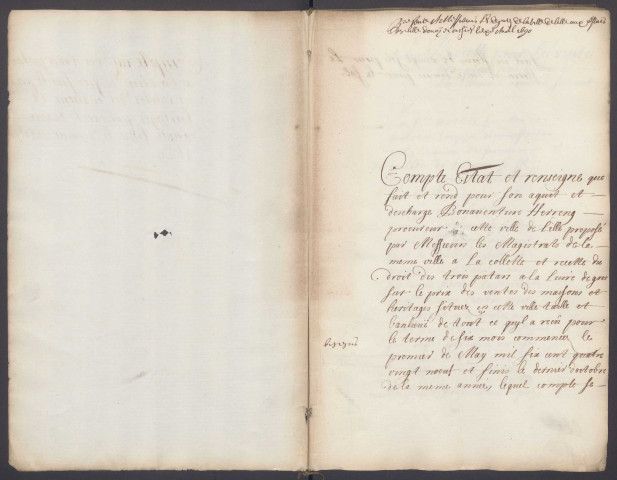 Compte Estat et renseigne que
fait et rend pour son aquit et
descharge Bonaventure Herreng
procureur a cette ville de Lille preposé
par Messieurs les Magistrats de la
meme ville a La collecte et recette du
droit des trois patars a la livre de gros
sur le prix des ventes des maisons et
heritages situez en cette ville taille et
banlieue de tout ce qu'il a reçu pour
le terme de six mois commencez le
premier de May mil six cent quatre
vingt noeuf et finis le dernier d'octobre
de la meme année lequel compte se